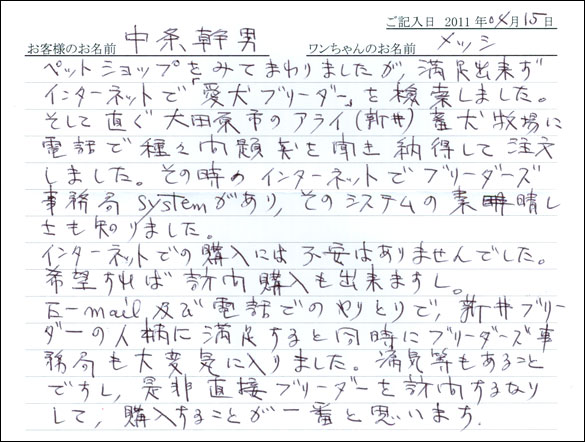 ご記入日 2011年04月15日
お客様のお名前 中条幹男 ワンちゃんのお名前 メッシ
ペットショップをみてまわりましたが、満足出来ず
インターネットで「愛犬ブリーダー」を検索しました。
そして直ぐ大田原市のアライ(新井)畜犬牧場に
電話で種々問題点を聞き納得して注文
しました。その時のインターネットでブリーダーズ
事務局systemがあり、そのシステムの素晴し
さも知りました。
インターネットでの購入には不安はありませんでした。
希望すれば訪問購入も出来ますし。
E-mail及び電話でのやりとりで、新井ブリー
ダーの人柄に満足すると同時にブリーダーズ事
務局も大変気に入りました。満見等もあること
ですし、是非直接ブリーダーを訪問するなり
して、購入することが一番と思います。